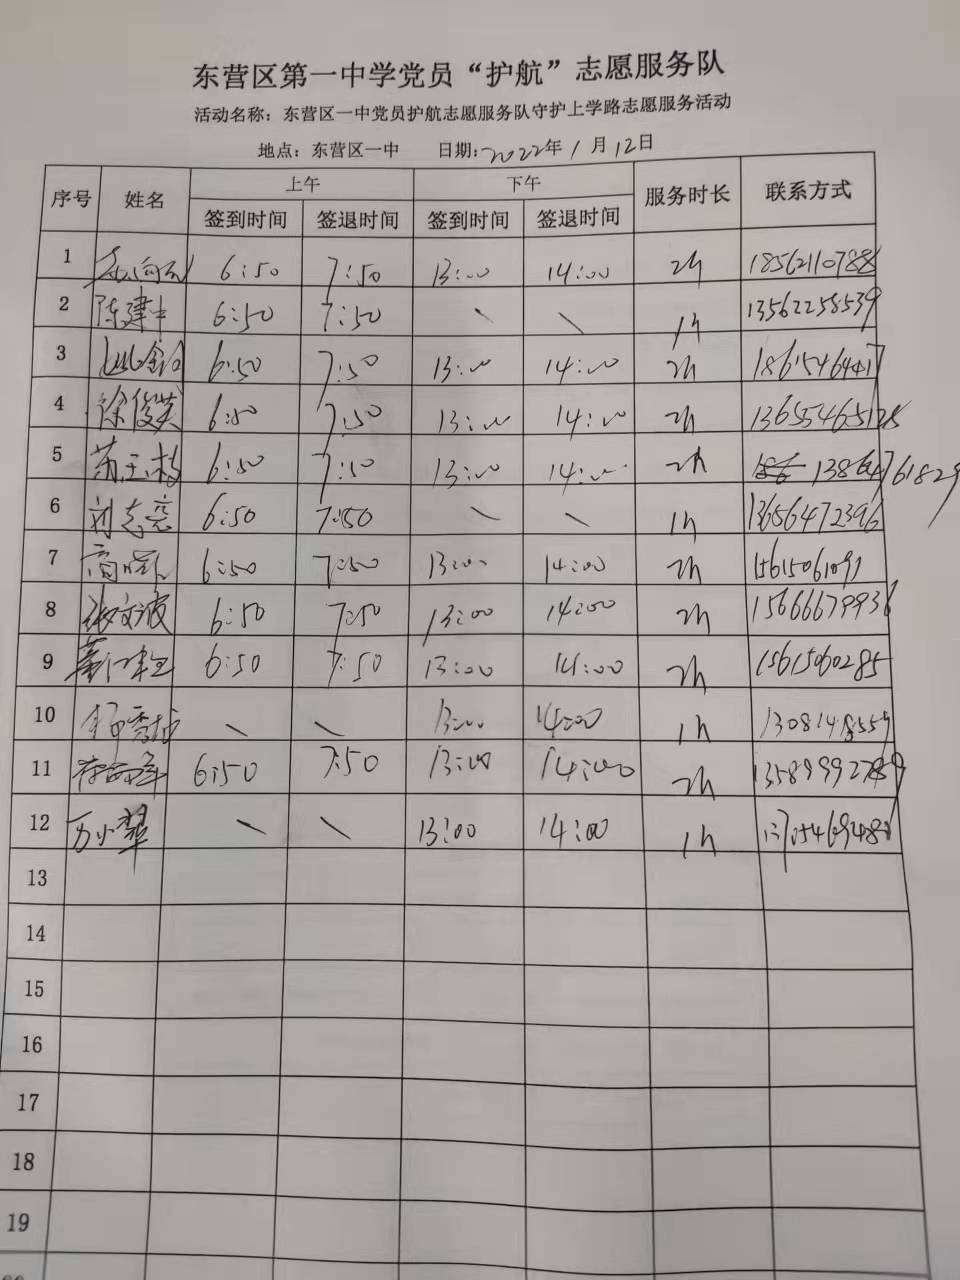 东营区第一中学党员“护航”志愿服务队
活动名称：东营区一中党员护航志愿服务队守护上学路志愿服务活动
地点：东营区一中 日期：2022年1月12日
序号 姓名 上午 下午 服务时长 联系方式
签到时间 签退时间 签到时间 签退时间
1 6:50 7:50 13:00 14:00 2h 18562110788
2 陈建中 6:50 7:50 \ \ 1h 13562258539
3 6:50 7:50 13:00 14:00 2h
4 徐俊英 6:50 7:50 13:00 14:00 2h 13655465128
5 苏玉梅 6:50 7:50 13:00 14:00 2h 13864761829
6 刘志亮 6:50 7:50 \ \ 1h 13656472396
7 6:50 7:50 13:00 14:00 2h 15615061091
8 张文波 6:50 7:50 13:00 14:00 2h 15666679936
9 6:50 7:50 13:00 14:00 2h 15615060285
10 \ \ 13:00 14:00 1h
11 6:50 7:50 13:00 14:00 2h
12 万小翠 \ \ 13:00 14:00 1h
13
14
15
16
17
18
19